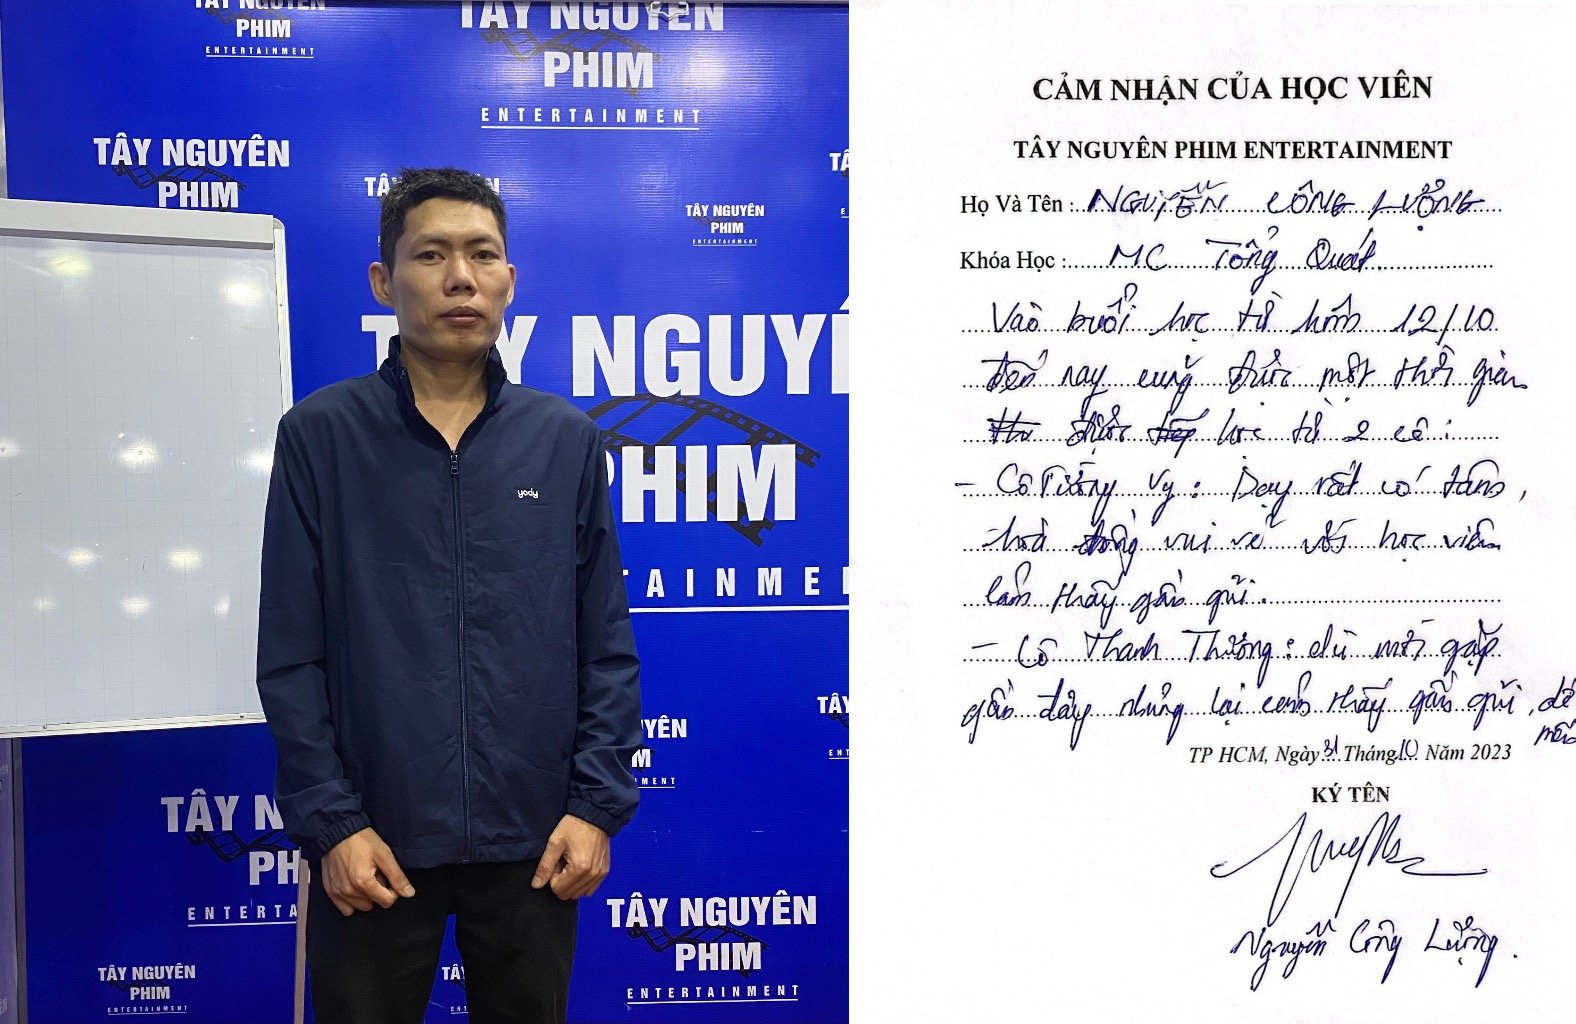 TÂY NGUYÊN
PHIM
ENTERTAINMENT
TÂY NGUYÊN
PHIM
ENTERTAINMENT
TÂY NGUYÊN
PHIM
TÂY NGUYÊN
PHIM
TÂY NGUYÊ
PHIM
TAINME
yody
TÂY N
PH
ENTERTA
TÂY NGUYÊN
PHIM
ENTERTAINMENT
TÂY NGUYÊN
PHIM
ENTERTAINMENT
CẢM NHẬN CỦA HỌC VIÊN
TÂY NGUYÊN PHIM ENTERTAINMENT
Họ Và Tên : NGUYỄN CÔNG LƯỢNG
Khóa Học : MC Tổng Quát.
Vào buổi học từ hôm 12/10
đến nay cũng được một thời gian
được học từ 2 cô :
- Cô Tường Vy : Dạy rất có tâm,
hoà đồng vui vẻ với học viên
cảm thấy gần gũi.
- Cô Thanh Thương : dù mới gặp
gần đây nhưng lại cảm thấy gần gũi, dễ
mến
TP HCM, Ngày 31 Tháng 10 Năm 2023
KÝ TÊN
Nguyễn Công Lượng.